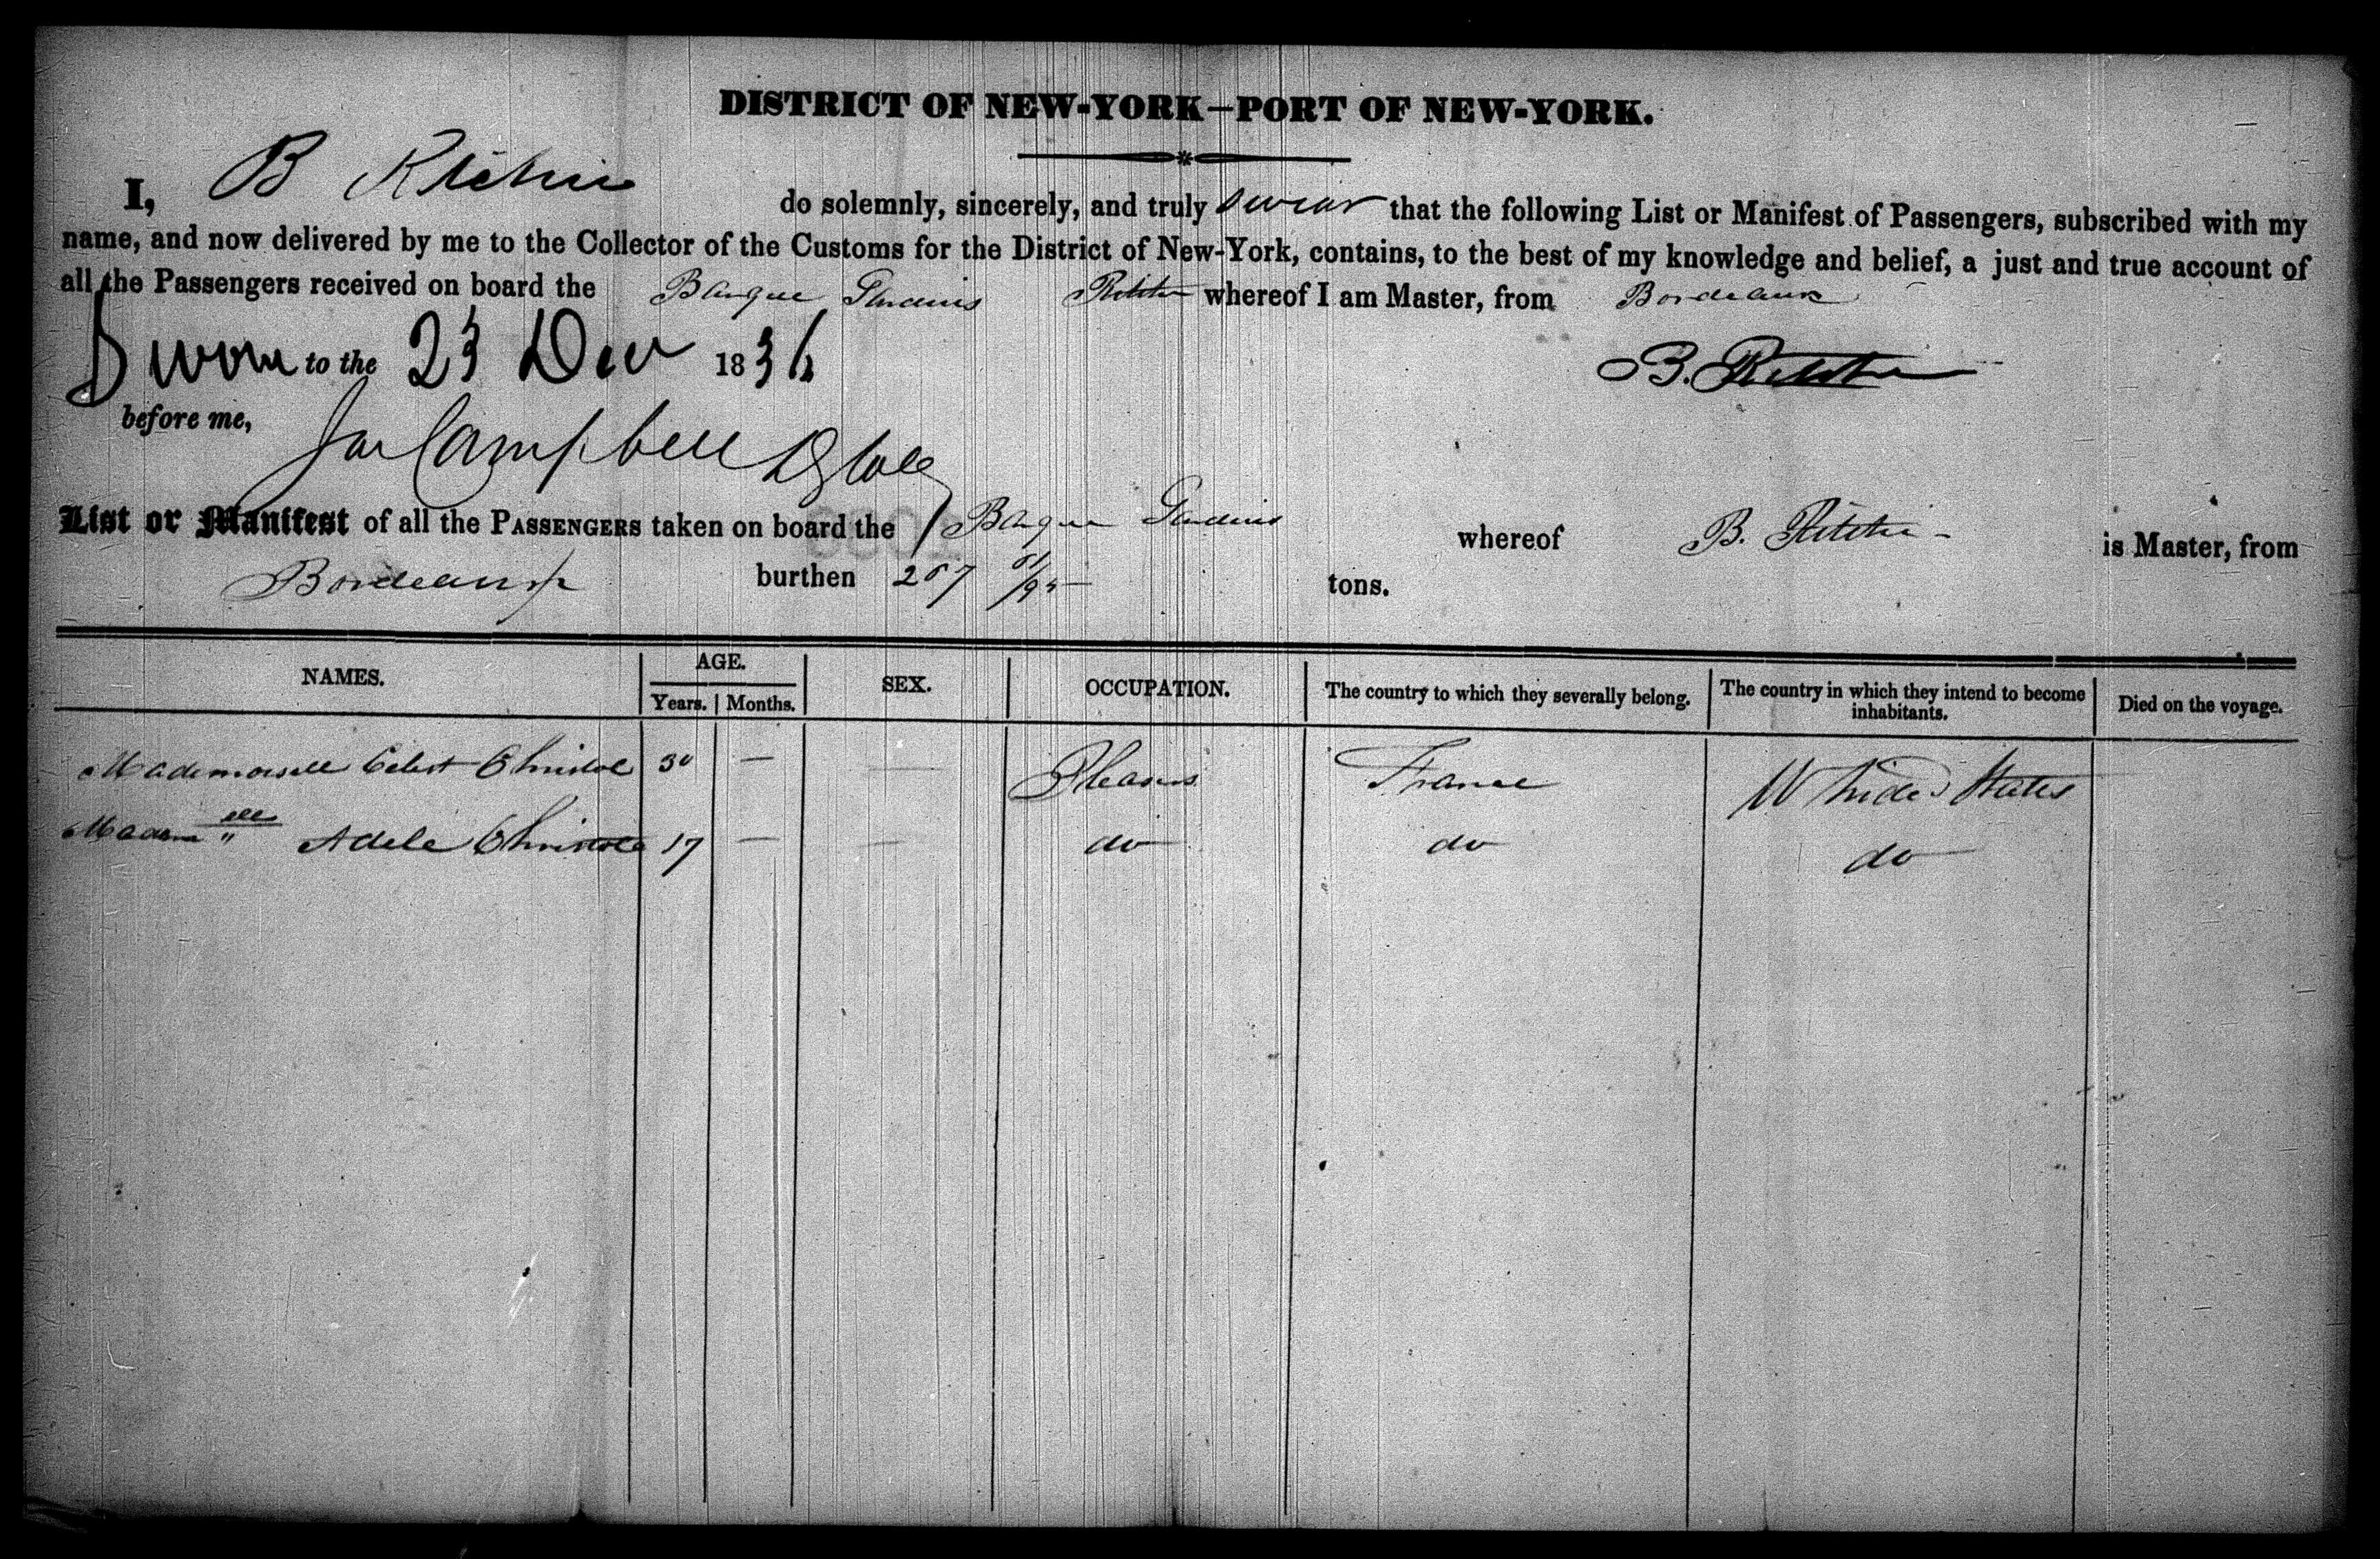 DISTRICT OF NEW-YORK—PORT OF NEW-YORK.
I, B Ritchie do solemnly, sincerely, and truly swear that the following List or Manifest of Passengers, subscribed with my
name, and now delivered by me to the Collector of the Customs for the District of New-York, contains, to the best of my knowledge and belief, a just and true account of
all the Passengers received on board the Barque whereof I am Master, from Bordeaux
Sworn to the 23 Dec 1836
B. Ritchie
before me,
Jas Campbell
List or Manifest of all the PASSENGERS taken on board the Barque whereof B. Ritchie is Master, from
Bordeaux burthen 257 tons.
NAMES. AGE. SEX. OCCUPATION. The country to which they severally belong. The country in which they intend to become inhabitants. Died on the voyage.
Years. Months.
Mademoiselle Celest Christol 30 — — Pleasure France United States
Adele Christol 17 — — do do do